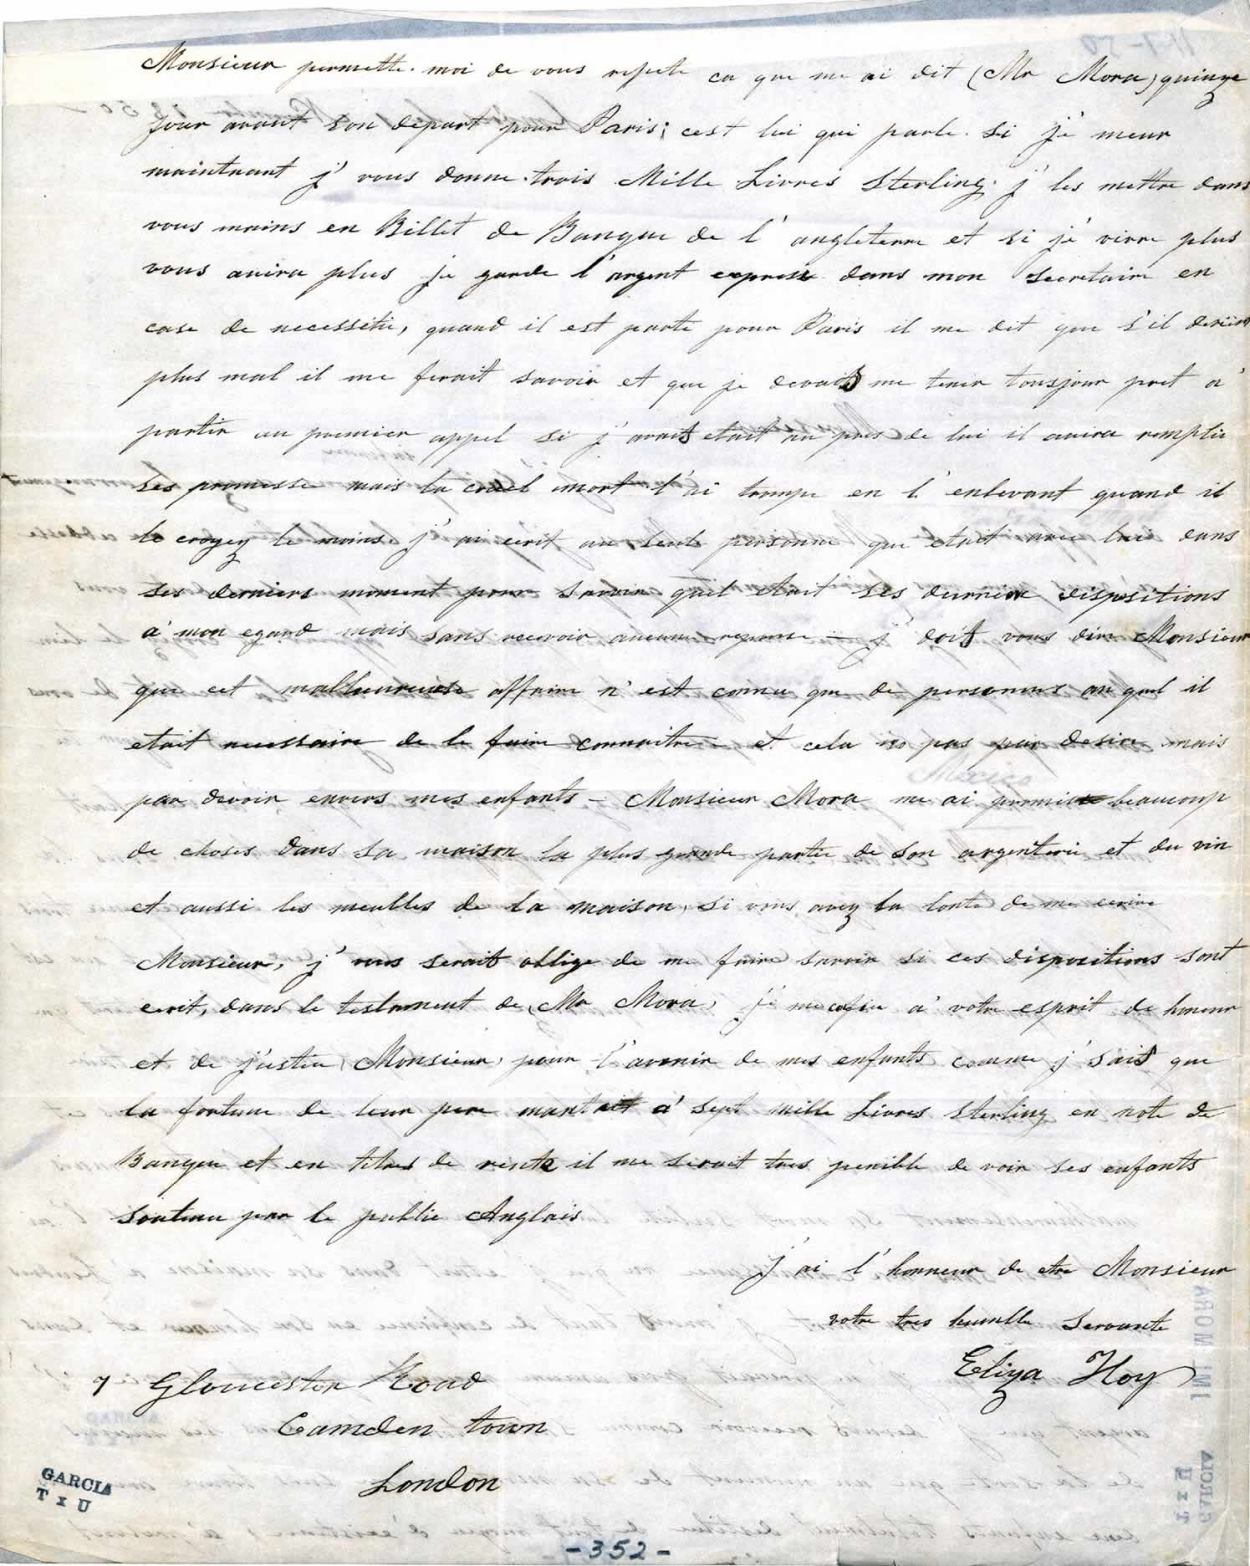 Monsieur permette. moi de vous repete ce que me ai dit (Mr Mora) quinze
jour avant son depart pour Paris; cest lui qui parle. Si je meur
maintnant j' vous donne. trois Mille Livres Sterling. j' les mettre dans
vous mains en Billet de Banque de l' angleterre et si je vivre plus
vous auira plus je garde l'argent express dans mon Secretaire en
case de necessitie, quand il est parte pour Paris il me dit que s'il
plus mal il me ferait savoir et que je devait me tenir tousjour pret a'
partir au premier appel si j' avait etait au pres de lui il auira remplie
Ses promesse mais la cruel mort l'ai trompe en l' enlevant quand il
le croyez le moins j' ai ecrit au seule personne que etait avec lui dans
Ses derniers moment pour Savoir quil etait Ses derniere dispositions
a' mon egard mais sans recevoir aucune reponse — j' doit vous dire Monsieur
que cet malheureuse affaire n' est connu que de personnes au quel il
etait necessaire de le faire connaitre et cela no pas par desire mais
par devoir envers mes enfants — Monsieur Mora me ai promise beaucoup
de choses dans Sa maison la plus grande partie de Son argenterie et du vin
et aussi les meubles de la maison, si vous avez la bonte de me ecrire
Monsieur, j' vous serait oblige de me faire savoir si ces dispositions sont
ecrit, dans le testament de Mr Mora, je me cofie a' votre esprit de honeur
et de justice Monsieur, pour l'avenir de mes enfants comme j' sait que
la fortune de leur pere mantait a' Sept mille Livres Sterling en note de
Banque et en titres de rente il me serait tres penible de voir ses enfants
Soutenu par le public Anglais
j' ai l' honneur de etre Monsieur
votre tres humble Servante
Eliza Hoy
7 Gloucester Road
Camden town
London
GARCIA
T x U
JML MORA
GARCIA
T x U
- 352 -